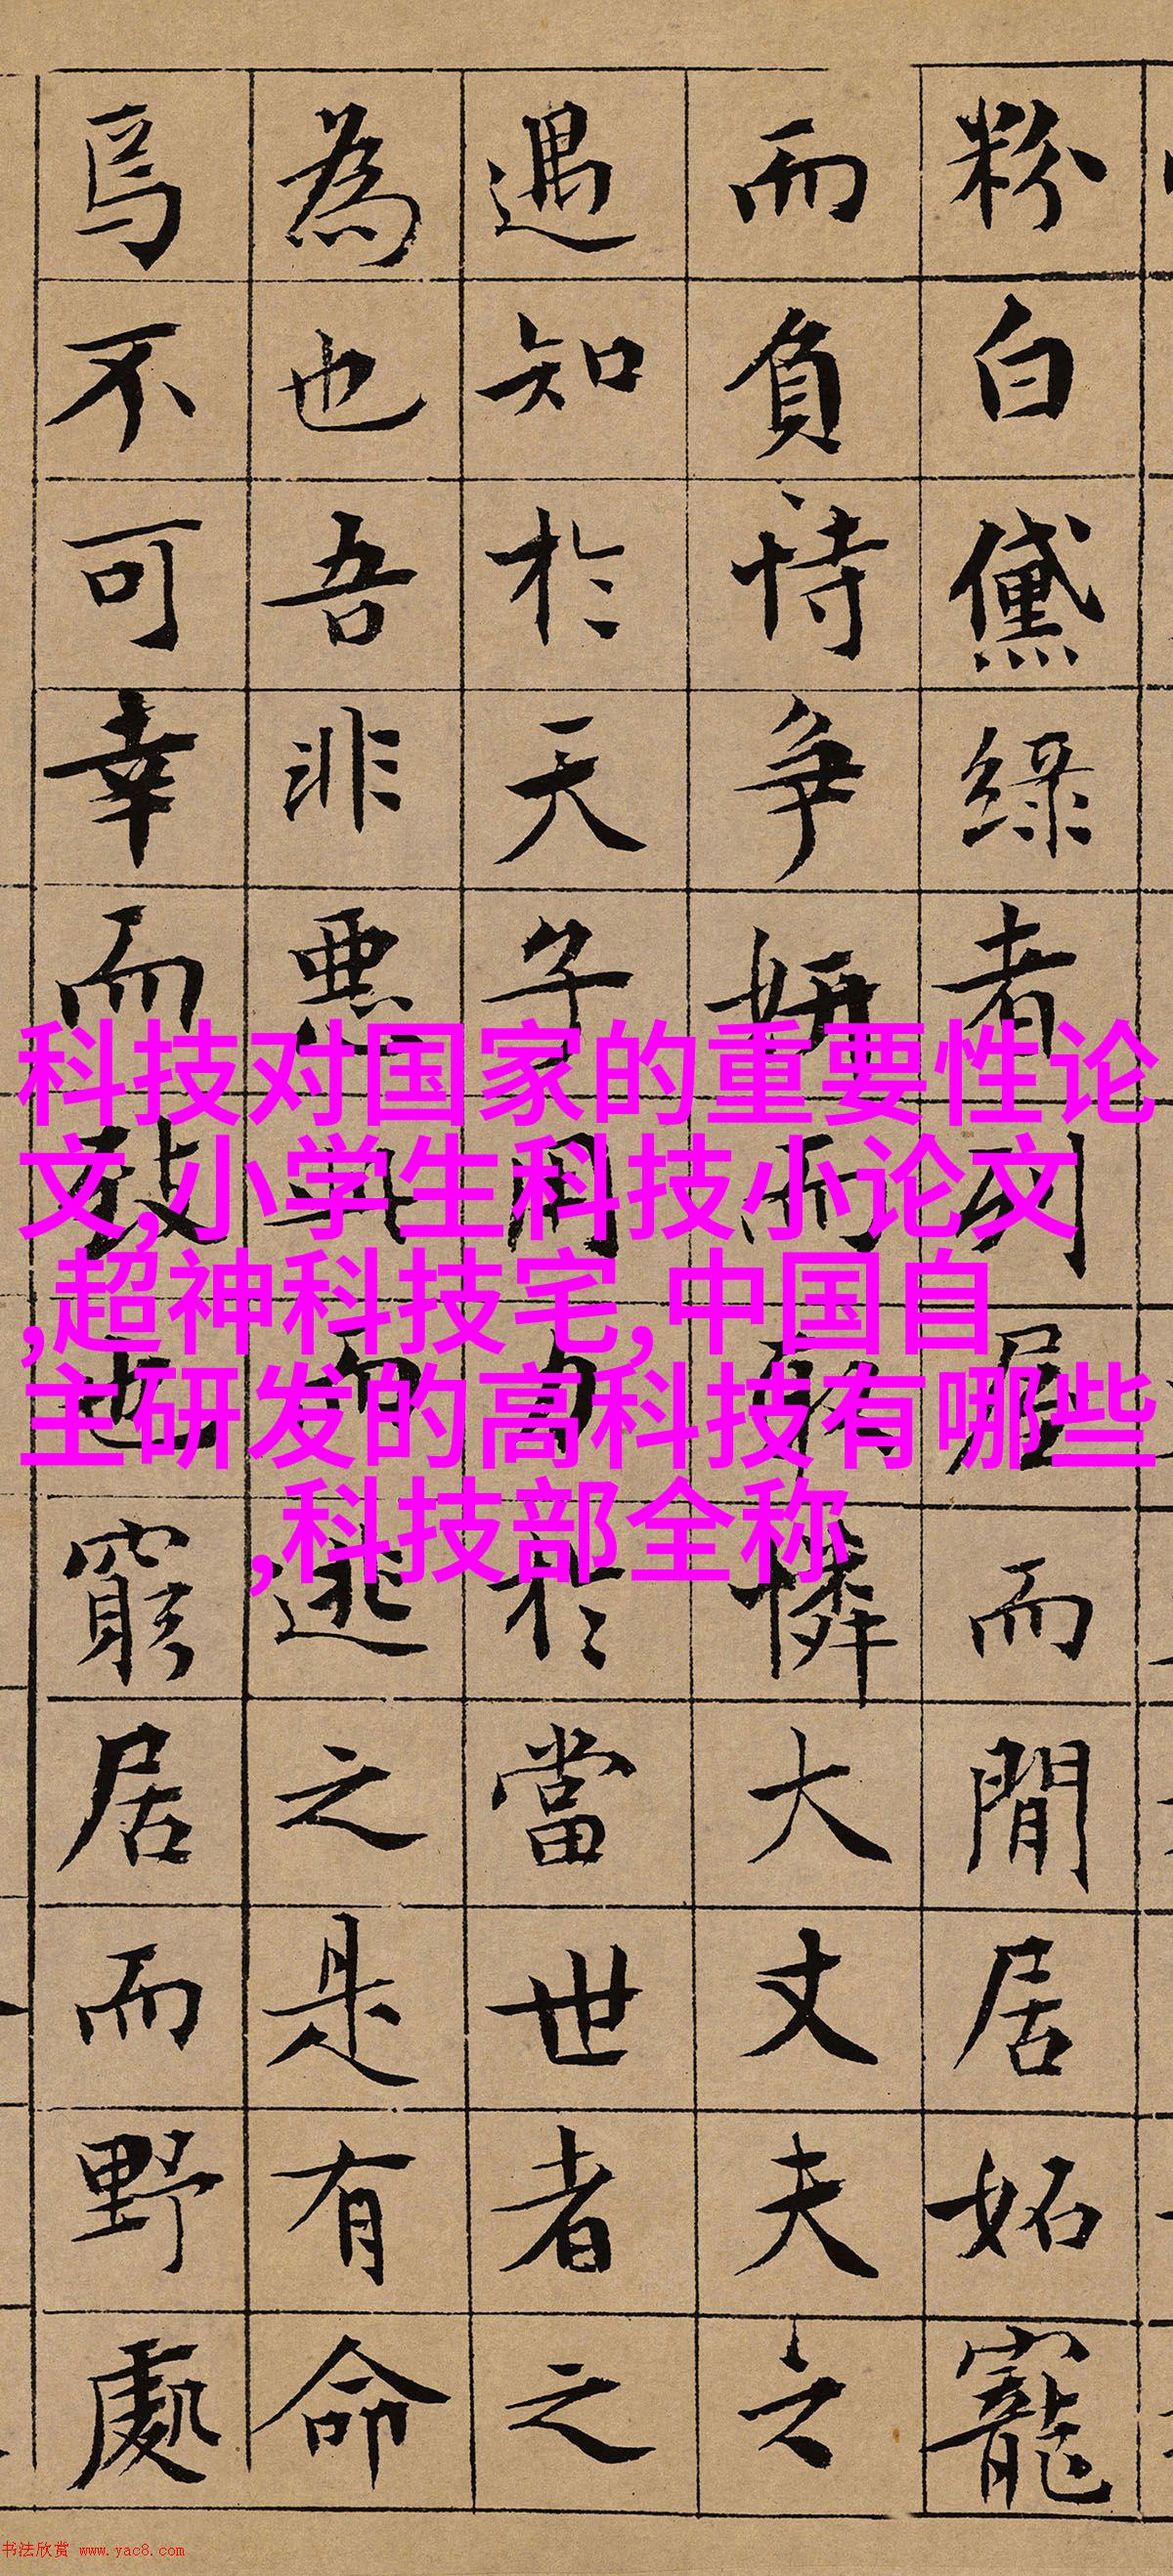 粉白黛綠者列屋而閒居妬寵
而負恃爭妍而取憐大丈夫之
遇知於天子用力於當世者之
為也吾非惡此而逃之是有命
焉不可幸而致也窮居而野處
科技对国家的重要性论
文,小学生科技小论文
,超神科技宅,中国自
主研发的高科技有哪些
,科技部全称
书法欣赏 www.yac8.com